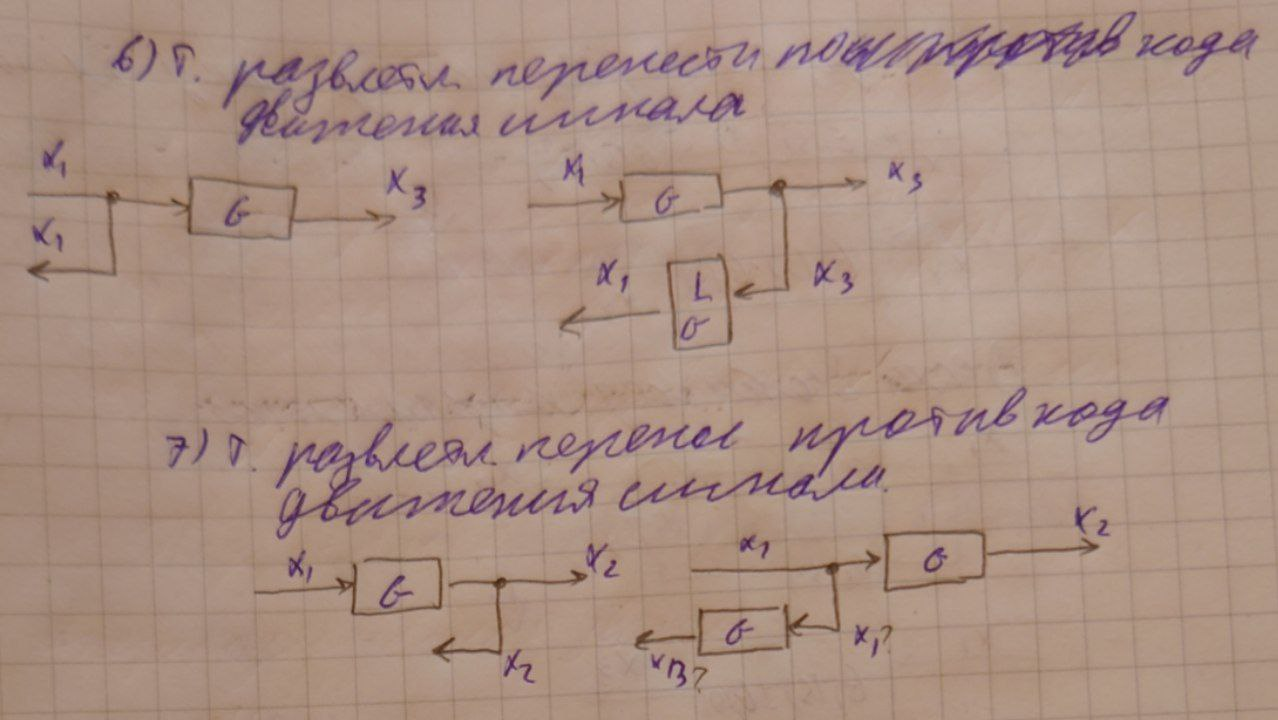 6) Т. разветл перенести по хода
движения сигнала
x₁ x₃ x₁ x₃
G G
x₁
x₁ 1 x₃
G
7) Т. разветл перенос против хода
движения сигнала.
x₁ G x₂ x₁ G x₂
x₂ G x₁?